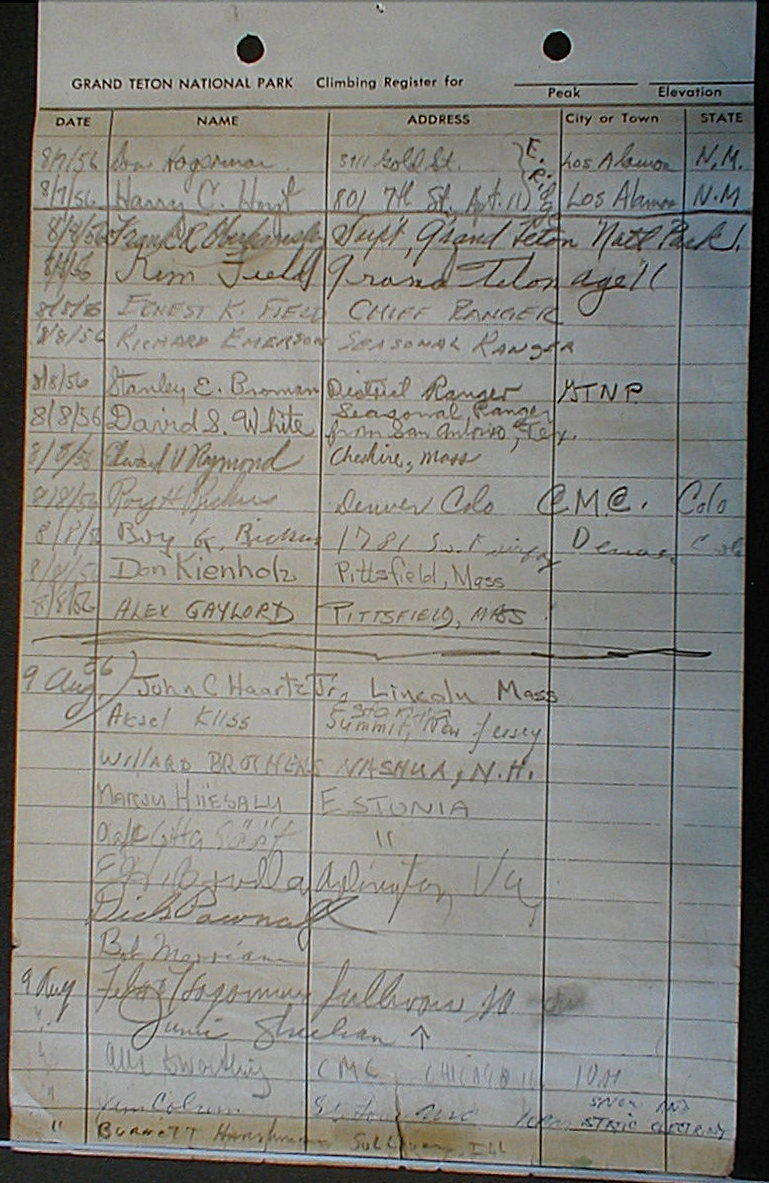 GRAND TETON NATIONAL PARK Climbing Register for Peak Elevation
DATE NAME ADDRESS City or Town STATE
8/7/56 Hagerman Gold St. Los Alamos N.M.
8/7/56 Harry C. Hoyt 801 7th St, Apt. 11 Los Alamos N.M
8/8/56 Frank R. Supt, Grand Teton Nat'l Park.
8/8/56 Kim Field Grand Teton age 11
8/8/56 ERNEST K. FIELD CHIEF RANGER
8/8/56 RICHARD EMERSON SEASONAL RANGER
8/8/56 Stanley E. Broman District Ranger GTNP.
8/8/56 David S. White Seasonal Ranger
from San Antonio, Tex.
8/8/56 Edward V Raymond Cheshire, Mass
8/8/56 Roy H Denver Colo C.M.C. Colo
8/8/56 G. 1781 So. Denver
8/8/56 Don Kienholz Pittsfield, Mass
8/8/56 ALEX GAYLORD PITTSFIELD, MASS
9 Aug. 56 John C Haartz Jr, Lincoln Mass
Aksel Kliss Estonia
Summit, New Jersey
WILLARD BROTHERS NASHUA, N.H.
HIIESALU ESTONIA
"
Arlington, Va,
Dick Pownall
Bob Merriam
9 Aug Hagerman Sullivan Ill
" Sheehan ↑
" CMC CHICAGO
"
" BURNETT SULLIVAN, ILL